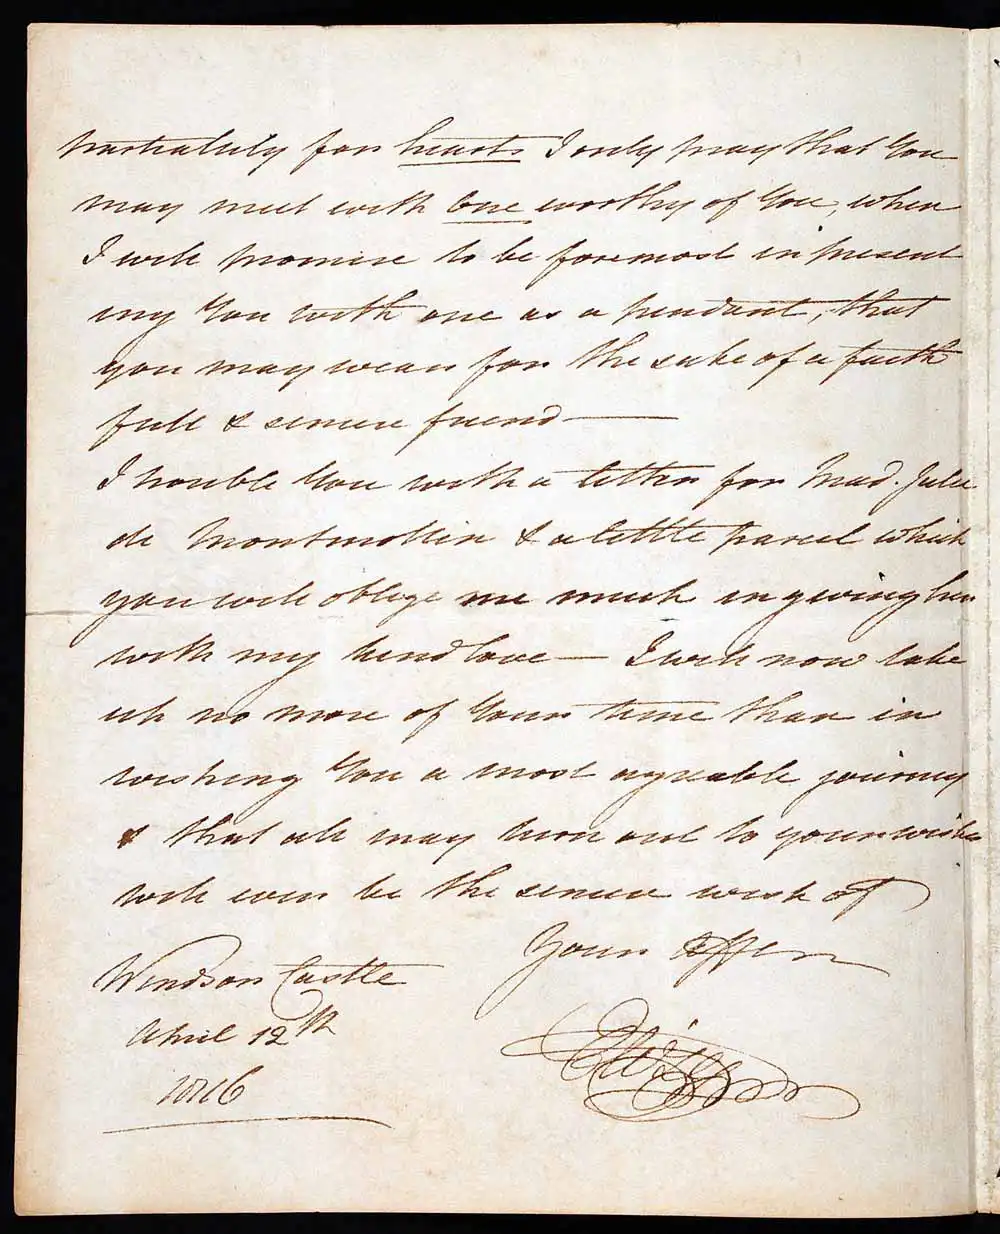 partiality for hearts I only pray that You
may meet with One worthy of You, when
I will promise to be foremost in present
ing You with one as a pendant, that
you may wear for the sake of a faith
full & sincere friend—
I trouble You with a letter for Mad. Julie
de Montmollin & a little parcel which
you will oblige me much in giving her
with my kind love— I will now take
up no more of Your time than in
wishing You a most agreable journey
& that all may turn out to your wishes
will ever be the sincere wish of
Your affen
Windsor Castle
April 12th
1816
Eliza